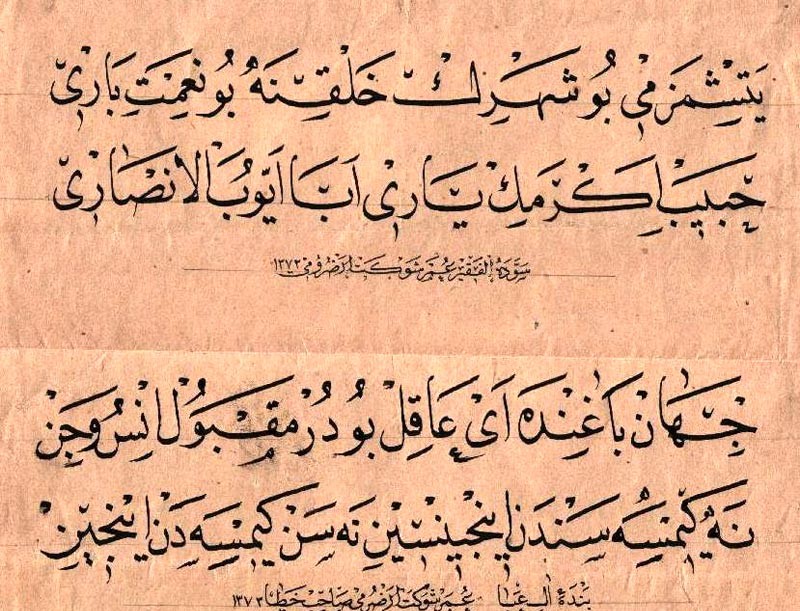 يَتِشْمَزمِى بُو شَهْرِكْ خَلْقِنَهْ بُو نِعْمَتِ بَارِيْ
حَبِيبِ اَكْرَمِكْ يَارِيْ اَبَا اَيُّوبُ الْاَنْصَارِيْ
سَوَّدَهُ الفَقِير عُمَر شَوْكَت ارضرومى ١٣٧٢
جِهَانْ بَاغِنْدَه اَىْ عَاقِلْ بُودُرْ مَقْبُولْ اِنْسُ وَجِنْ
نَه كِيمْسَه سَنْدَنْ اِينْجِينْسِينْ نَه سَنْ كِيمْسَه دَنْ اِينْجِينْ
بندۀ عمر شوكت ارضرومى صاحب خطا ١٣٧٢